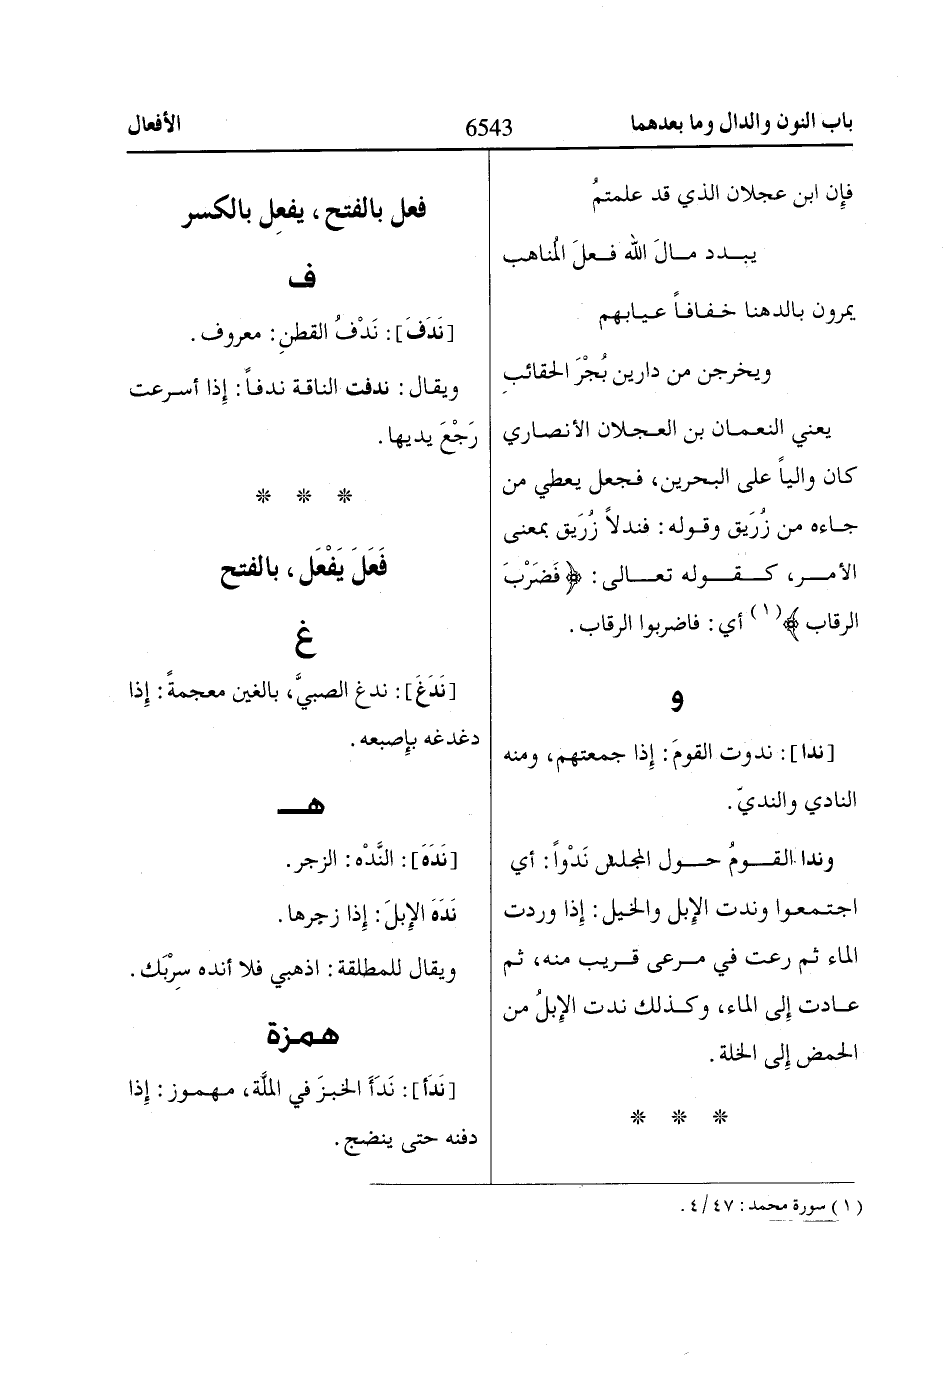 باب النون والدال وما بعدهما 6543 الأفعال
فإن ابن عجلان الذي قد علمتمُ
يبدد مالَ الله فعلَ المُناهب
يمرون بالدهنا خفافاً عيابهم
ويخرجن من دارين بُجْرَ الحقائبِ
يعني النعمان بن العجلان الأنصاري
كان والياً على البحرين، فجعل يعطي من
جاءه من زُرَيق وقوله: فندلاً زُرَيق بمعنى
الأمر، كقوله تعالى: ﴿فَضَرْبَ
الرقاب﴾(١) أي: فاضربوا الرقاب.
و
[ندا]: ندوت القومَ: إذا جمعتهم، ومنه
النادي والنديّ.
وندا القومُ حول المجلس نَدْواً: أي
اجتمعوا وندت الإبل والخيل: إذا وردت
الماء ثم رعت في مرعى قريب منه، ثم
عادت إلى الماء، وكذلك ندت الإبلُ من
الحمض إلى الخلة.
* * *
فعل بالفتح، يفعِل بالكسر
ف
[نَدَفَ]: نَدْفُ القطنِ: معروف.
ويقال: ندفت الناقة ندفاً: إذا أسرعت
رَجْعَ يديها.
* * *
فَعَلَ يَفْعَل، بالفتح
غ
[نَدَغَ]: ندغ الصبيَّ، بالغين معجمةً: إذا
دغدغه بإصبعه.
هـ
[نَدَهَ]: النَّدْه: الزجر.
نَدَهَ الإبلَ: إذا زجرها.
ويقال للمطلقة: اذهبي فلا أنده سِرْبَك.
همزة
[نَدَأ]: نَدَأَ الخبزَ في الملَّة، مهموز: إذا
دفنه حتى ينضج.
(١) سورة محمد: ٤٧/ ٤.